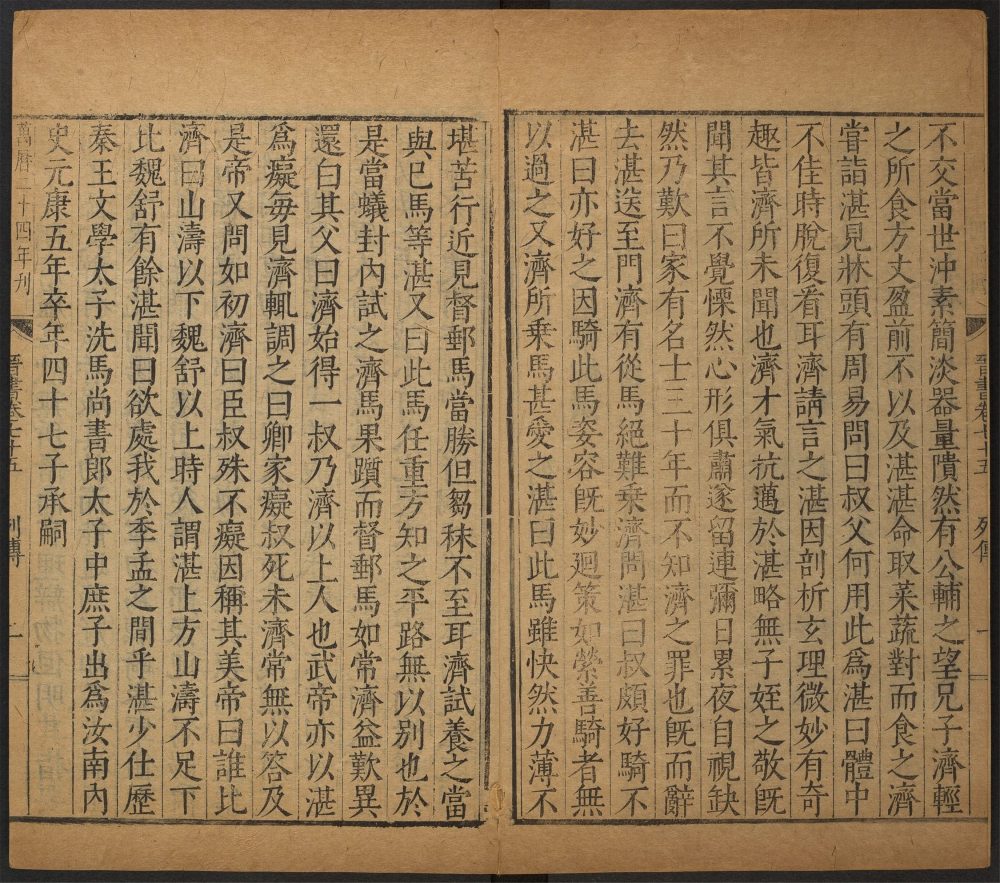 不交當世沖素簡淡器量隤然有公輔之望兄子濟輕
之所食方丈盈前不以及湛湛命取菜蔬對而食之濟
嘗詣湛見牀頭有周易問曰叔父何用此爲湛曰體中
不佳時脫復看耳濟請言之湛因剖析玄理微妙有奇
趣皆濟所未聞也濟才氣抗邁於湛略無子姪之敬旣
聞其言不覺慄然心形俱肅遂留連彌日累夜自視缺
然乃歎曰家有名士三十年而不知濟之罪也旣而辭
去湛送至門濟有從馬絕難乘濟問湛曰叔頗好騎不
湛曰亦好之因騎此馬姿容旣妙迴策如縈善騎者無
以過之又濟所乘馬甚愛之湛曰此馬雖快然力薄不
堪苦行近見督郵馬當勝但芻秣不至耳濟試養之當
與巳馬等湛又曰此馬任重方知之平路無以別也於
是當蟻封內試之濟馬果躓而督郵馬如常濟益歎異
還白其父曰濟始得一叔乃濟以上人也武帝亦以湛
爲癡每見濟輒調之曰卿家癡叔死未濟常無以答及
是帝又問如初濟曰臣叔殊不癡因稱其美帝曰誰比
濟曰山濤以下魏舒以上時人謂湛上方山濤不足下
比魏舒有餘湛聞曰欲處我於季孟之間乎湛少仕歷
秦王文學太子洗馬尚書郎太子中庶子出爲汝南內
史元康五年卒年四十七子承嗣
萬曆二十四年刊
晉書卷七十五
列傳
一